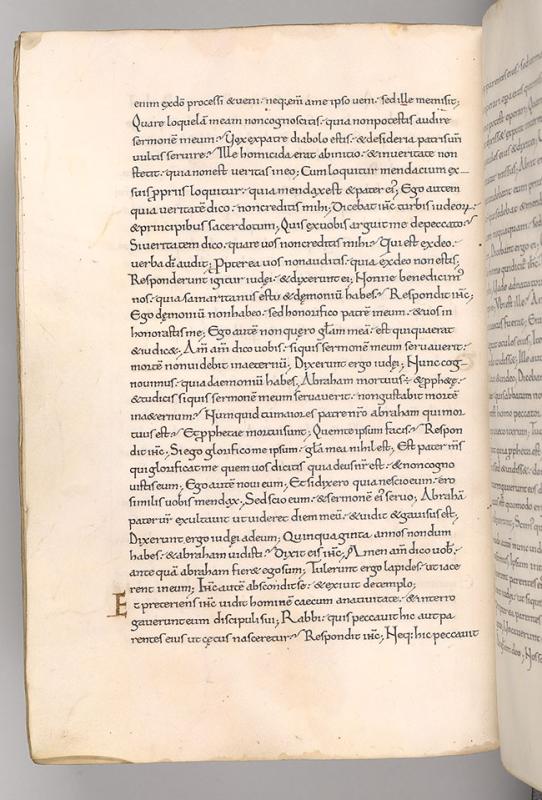 enim exdō processi & veni· neq; em̄ ame ipso veni· sed ille me misit;
Quare loquelā meam non cognoscitis· quia non potestis audire
sermonē meum· Vos ex patre diabolo estis· & desideria patris urī
vultis servire· Ille homicida erat ab initio· & in veritate non
stetit· quia non est veritas in eo; Cum loquitur mendacium ex
suis propriis loquitur· quia mendax est & pater ei'; Ego autem
quia veritatē dico· non creditis mihi; Dicebat ihc̄ turbis iudeoꝝ
& principibus sacerdotum; Quis ex vobis arguit me de peccato·
Si veritatem dico· quare vos non creditis mihi· Qui est ex deo·
verba dī audit; Propterea vos non auditis· quia ex deo non estis;
Responderunt igitur iudei· & dixerunt ei; Nonne benedicim'
nos· quia samaritanus es tu & demoniū habes· Respondit ihc̄;
Ego demoniū non habeo· sed honorifico patrē meum· & vos in
honorastis me; Ego autē non quero glām meā· est qui quaerat
& iudic&; Am̄ am̄ dico vobis· si quis sermonē meum servaverit·
mortē non videbit in aeternū; Dixerunt ergo iudei; Nunc cog
novimus· quia daemoniū habes; Abraham mortuus ÷ & pph&e·
& tu dicis si quis sermonē meum servaverit· non gustabit mortē
in a&ernum· Numquid tu maior es patre nr̄o abraham qui mor
tuus est· Et prophetae mortui sunt; Quem te ipsum facis· Respon
dit ihc̄; Si ego glorifico me ipsum· glā mea nihil est; Est pater m̄s
qui glorificat me quem vos dicitis quia deus nr̄ est· & non cogno
vistis eum; Ego autē novi eum; Et si dixero quia nescio eum· ero
similis vobis mendax; Sed scio eum· & sermonē ei' servo; Abrahā
pater ur̄ exultavit ut videret diem meū· & vidit & gavisus est;
Dixerunt ergo iudei ad eum; Quinquaginta annos nondum
habes· & abraham vidisti· Dixit eis ihc̄; Amen am̄ dico vob'·
ante quā abraham fier& ego sum; Tulerunt ergo lapides· ut iace
rent in eum; Ihc̄ autē abscondit se· & exivit de templo;
Et preteriens ihc̄ vidit hominē caecum a nativitate· & interro
gaverunt eum discipuli sui; Rabbi· quis peccavit hic aut pa
rentes eius ut cecus nasceretur· Respondit ihc̄; Neq; hic peccavit